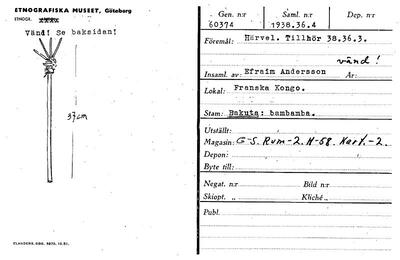 ETNOGRAFISKA MUSEET, Göteborg
ETNOGR.
Vänd! Se baksidan!
37cm
ELANDERS, GBG. 5070. 10. 51.
Gen. n:r Saml. n:r Dep. n:r
60374 1938.36.4
Föremål: Härvel. Tillhör 38.36.3.
vänd!
Insaml. av: Efraim Andersson År:
Lokal: Franska Kongo.
Stam: Bakuta: bambamba.
Utställt:
Magasin: G-S. Rum-2. H-58. Kart.-2.
Depon:
Byte till:
Negat. n:r Bild n:r
Skiopt. „ Kliché „
Publ.